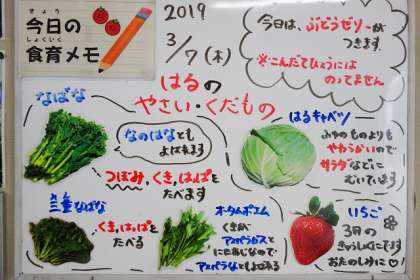 きょう
今日の
しょくいく
食育メモ
2019
3/7(木)
今日は、ぶどうゼリーが
つきます。
※こんだてひょうには
のってません
はるの
やさい・くだもの
なばな
なのはなとも
よばれます
つぼみ、くき、はっぱを
たべます
はるキャベツ
ふゆのものよりも
やわらかいので
サラダなどに
むいています
みえ
三重なばな
くき、はっぱを
たべる
オータムポエム
くきが
アスパラガスと
にたあじなので
アスパラなともよばれる
いちご
3月の
きゅうしょくにです
おたのしみに♡